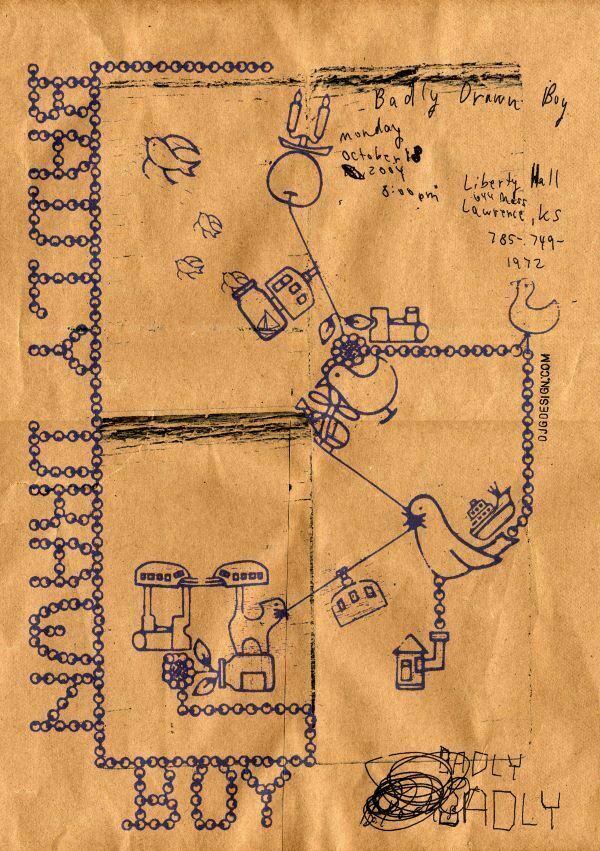 BADLY DRAWN
BOY
Badly Drawn Boy
monday
October 18
2004
8:00 pm
Liberty Hall
644 Mass
Lawrence, KS
785-749-
1972
DJGDESIGN.COM
BADLY
BADLY